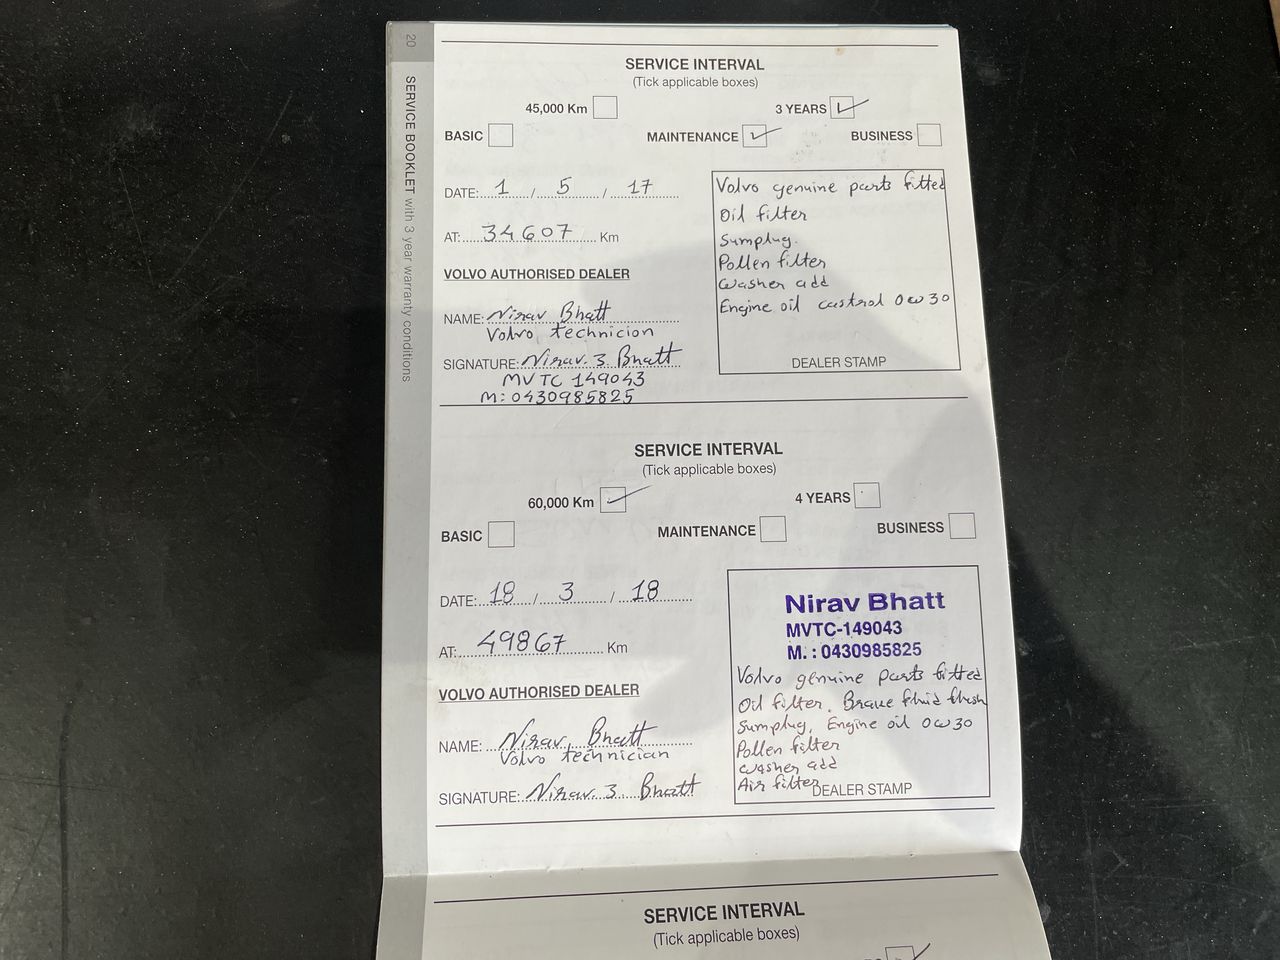 20
SERVICE BOOKLET with 3 year warranty conditions
SERVICE INTERVAL
(Tick applicable boxes)
45,000 Km
3 YEARS
BASIC
MAINTENANCE
BUSINESS
DATE: 1 / 5 / 17
AT: 34607 Km
VOLVO AUTHORISED DEALER
NAME: Nirav Bhatt
Volvo technicion
SIGNATURE: Nirav. J. Bhatt
MVTC 149043
M: 0430985825
Volvo genuine parts fitted
Oil filter
Sumplug.
Pollen filter
washer add
Engine oil castrol 0w30
DEALER STAMP
SERVICE INTERVAL
(Tick applicable boxes)
60,000 Km
4 YEARS
BASIC
MAINTENANCE
BUSINESS
DATE: 18 / 3 / 18
AT: 49867 Km
VOLVO AUTHORISED DEALER
NAME: Nirav Bhatt
Volvo technician
SIGNATURE: Nirav. J. Bhatt
Nirav Bhatt
MVTC-149043
M. : 0430985825
Volvo genuine parts fitted
Oil filter. fluid flush
Sumplug, Engine oil 0w30
Pollen filter
washer add
Air filter
DEALER STAMP
SERVICE INTERVAL
(Tick applicable boxes)